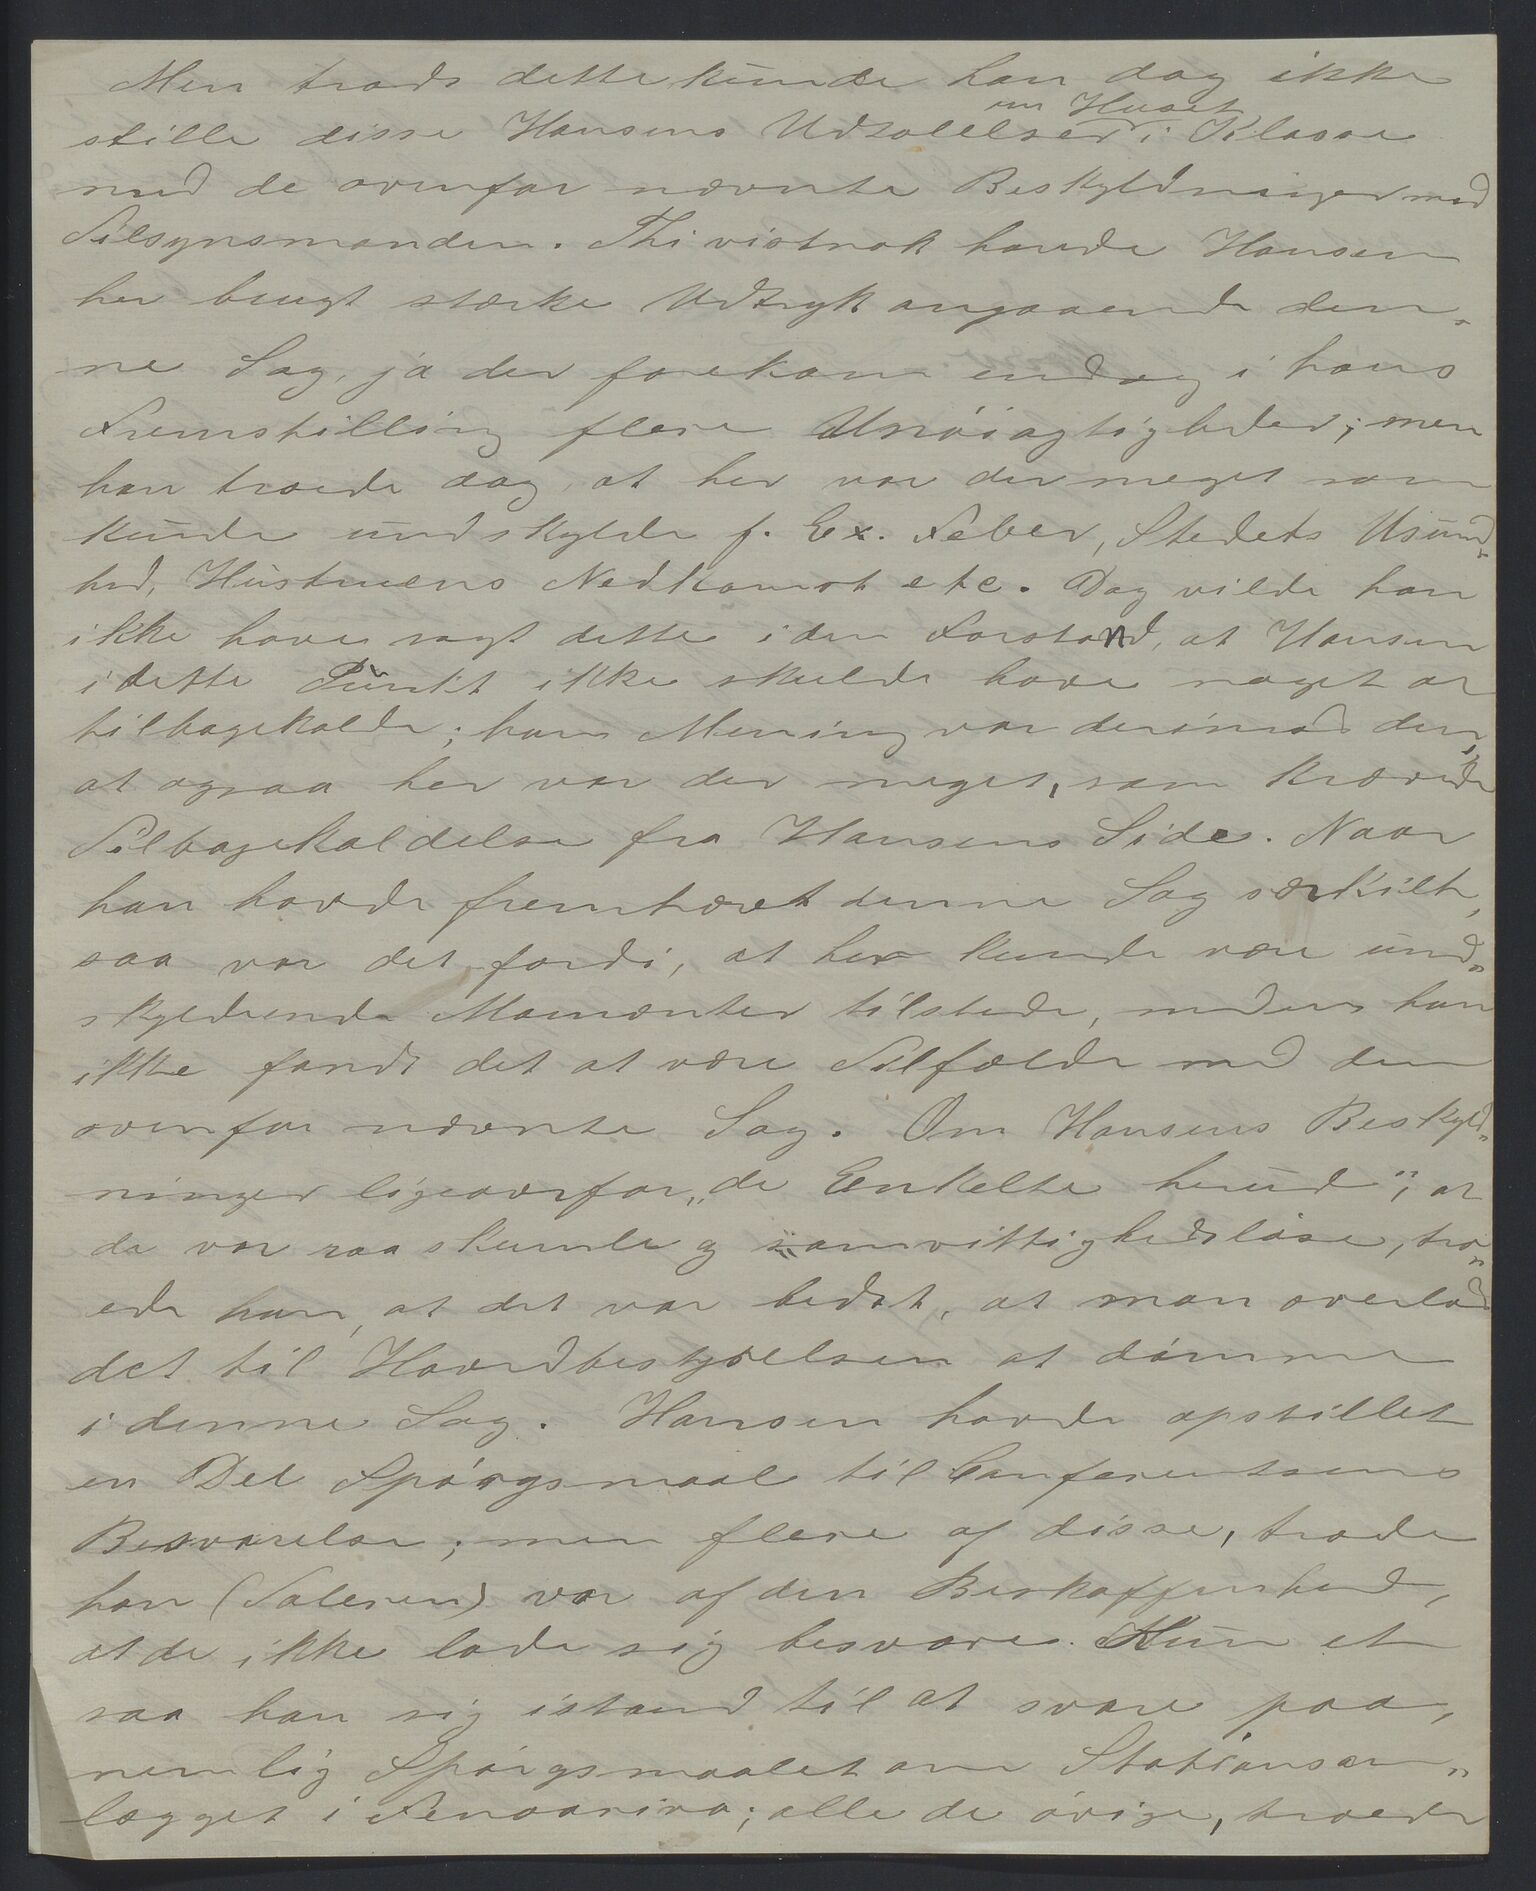 Men trods dette kunde han dog ikke
stille disse Hansens Udtalelser om Huset i Klasse
med de ovenfor nævnte Beskyldninger mod
Tilsynsmanden. Thi vistnok havde Hansen
her brugt stærke Udtryk angaaende den-
ne Sag, ja der forekom endog i hans
Fremstilling flere Unöiagtigheder; men
han troede dog, at her var der meget som
kunde undskylde f. Ex. Feber, Stedets Usund-
hed, Hustruens Nedkomst etc. Dog vilde han
ikke have sagt dette i den Forstand, at Hansen
i dette Punkt ikke skulde have noget at
tilbagekalde; hans Mening var derimod den,
at ogsaa her var der meget, som krævede
Tilbagekaldelse fra Hansens Side. Naar
han havde fremhævet denne Sag særkilt,
saa var det fordi, at her kunde være und-
skyldende Momenter tilstede, medens han
ikke fandt det at være Tilfælde med den
ovenfor nævnte Sag. Om Hansens Beskyld-
ninger ligeoverfor "de Enkelte herud", at
de var saa skumle og samvittighedsløse, tro-
ede han, at det var bedst, at man overlod
det til Hovedbestyrelsen at dömme
i denne Sag. Hansen havde opstillet
en Del Spörgsmaal til Conferentsens
Besvarelse; men flere af disse, trode
han (Taleren) var af den Beskaffenhed,
at de ikke lode sig besvare. Kun et
saa han sig istand til at svare paa,
nemlig Spörgsmaalet om Stationsan-
lægget i Fenoarivo; alle de övige, troede